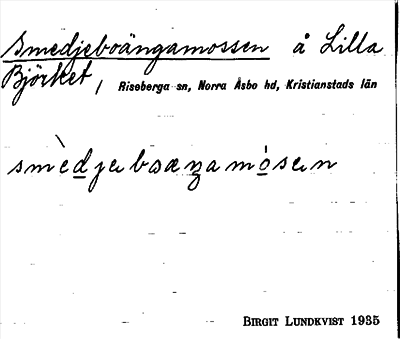 Smedjeboängamossen å Lilla
Björket, Riseberga sn, Norra Åsbo hd, Kristianstads län
smèdjeboæŋamósen
BIRGIT LUNDKVIST 1935